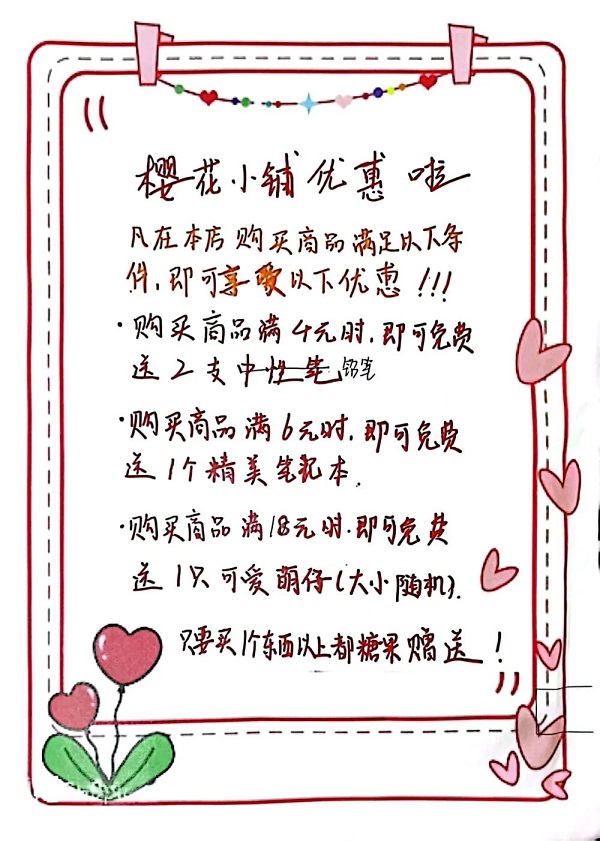 樱花小铺优惠啦
凡在本店购买商品满足以下条
件,即可享受以下优惠!!!
·购买商品满4元时,即可免费
送2支中性笔铅笔
·购买商品满6元时,即可免费
送1个精美笔记本.
·购买商品满18元时.即可免费
送1只可爱萌仔(大小随机).
只要买1个东西以上都糖果赠送!